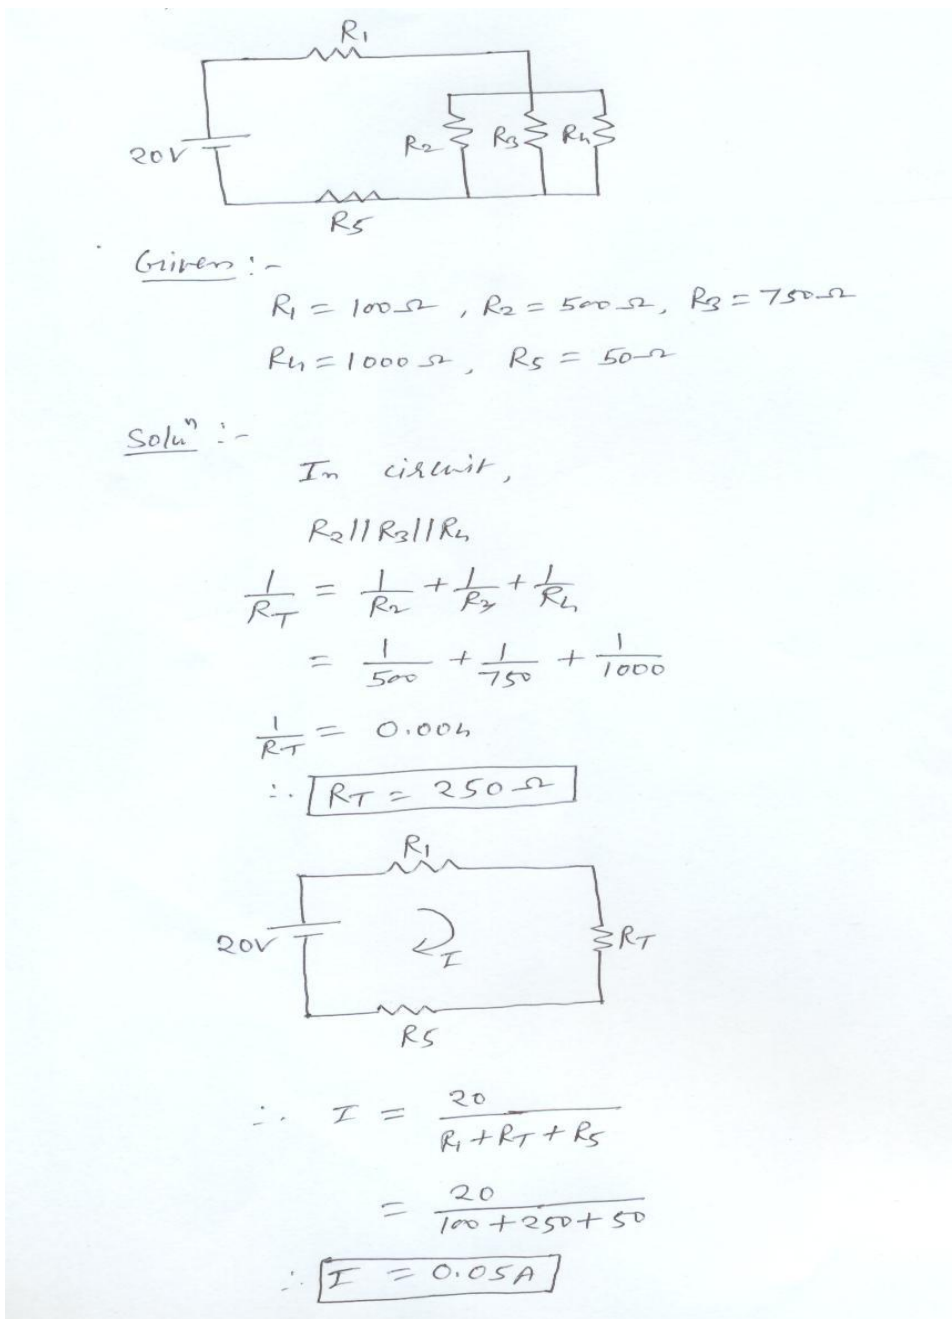 R1
20V
R2 R3 R4
R5
Given :-
R1 = 100Ω , R2 = 500Ω, R3 = 750Ω
R4 = 1000Ω, R5 = 50Ω
Soluⁿ :-
In circuit,
R2||R3||R4
1/RT = 1/R2 + 1/R3 + 1/R4
= 1/500 + 1/750 + 1/1000
1/RT = 0.004
∴ RT = 250Ω
R1
20V
I
RT
R5
∴ I = 20/(R1+RT+R5)
= 20/(100+250+50)
∴ I = 0.05A